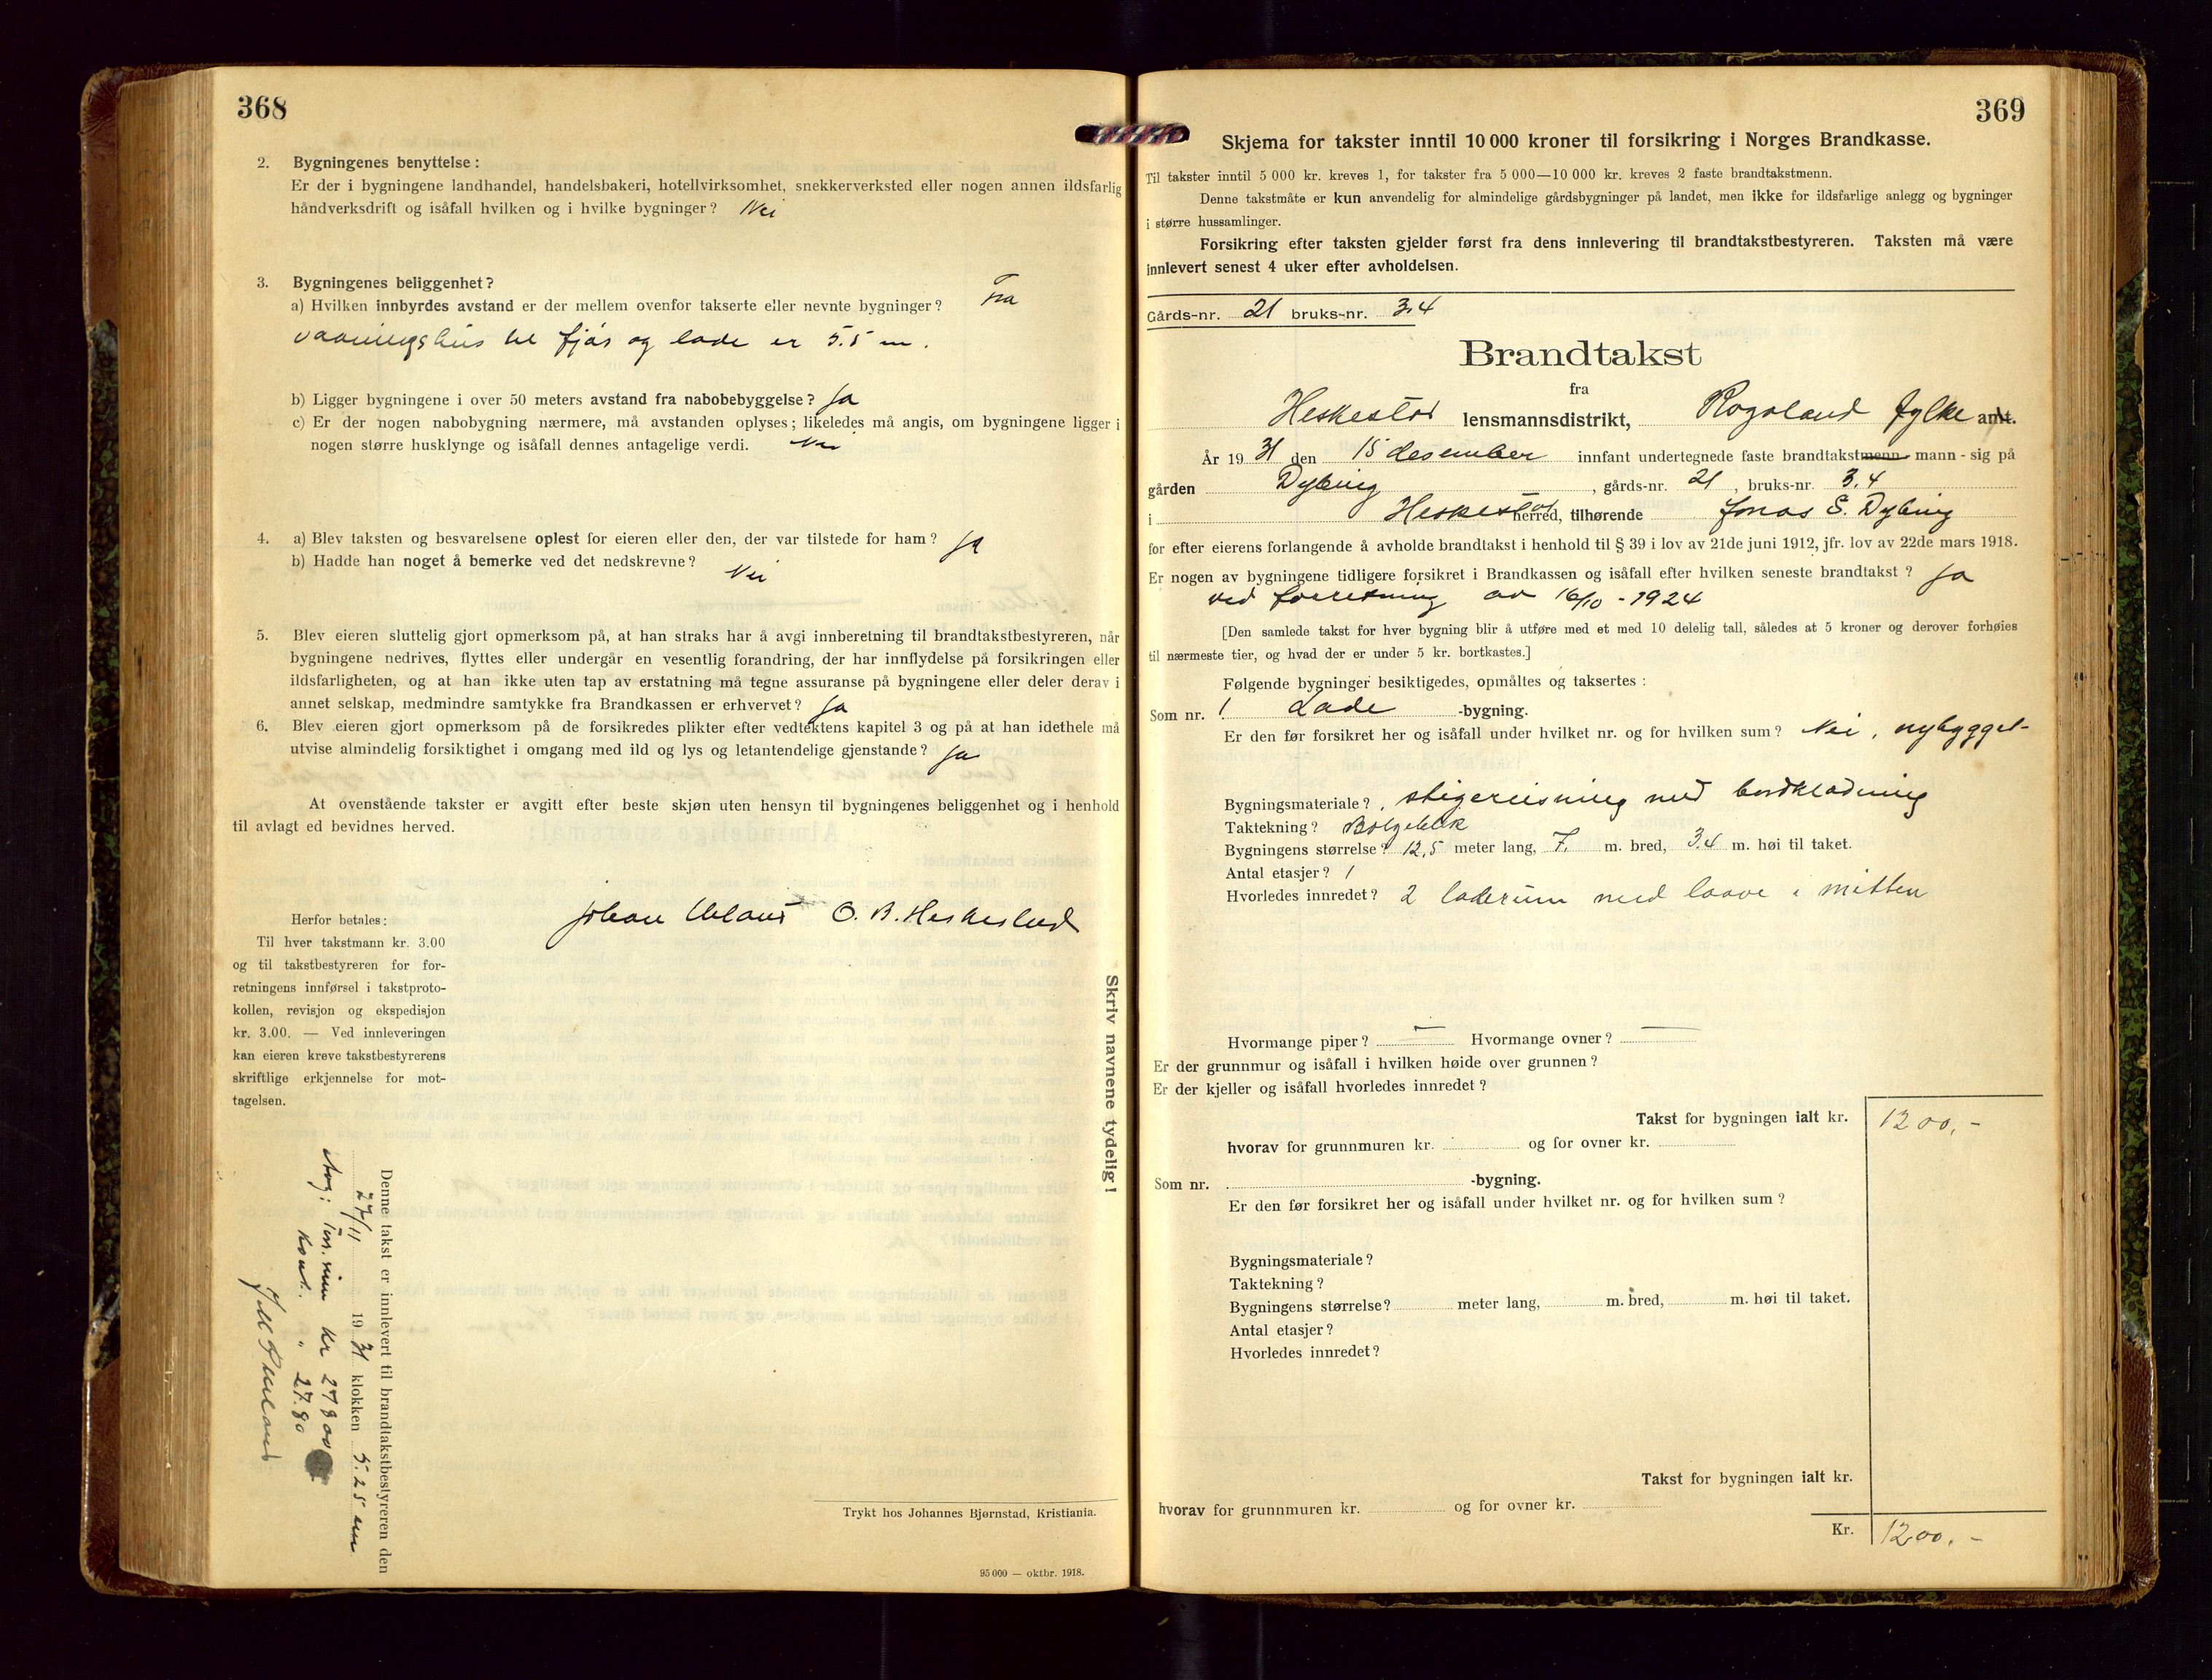 368
2. Bygningenes benyttelse:
Er der i bygningene landhandel, handelsbakeri, hotellvirksomhet, snekkerverksted eller nogen annen ildsfarlig
håndverksdrift og isåfall hvilken og i hvilke bygninger? Nei
3. Bygningenes beliggenhet?
a) Hvilken innbyrdes avstand er der mellem ovenfor takserte eller nevnte bygninger? Fra
vaaningshus til fjøs og lade er 5.5 m.
b) Ligger bygningene i over 50 meters avstand fra nabobebyggelse? Ja
c) Er der nogen nabobygning nærmere, må avstanden oplyses; likeledes må angis, om bygningene ligger i
nogen større husklynge og isåfall dennes antagelige verdi. Nei
4. a) Blev taksten og besvarelsene oplest for eieren eller den, der var tilstede for ham? Ja
b) Hadde han noget å bemerke ved det nedskrevne? Nei
5. Blev eieren sluttelig gjort opmerksom på, at han straks har å avgi innberetning til brandtakstbestyreren, når
bygningene nedrives, flyttes eller undergår en vesentlig forandring, der har innflydelse på forsikringen eller
ildsfarligheten, og at han ikke uten tap av erstatning må tegne assuranse på bygningene eller deler derav i
annet selskap, medmindre samtykke fra Brandkassen er erhvervet? Ja
6. Blev eieren gjort opmerksom på de forsikredes plikter efter vedtektens kapitel 3 og på at han idethele må
utvise almindelig forsiktighet i omgang med ild og lys og letantendelige gjenstande? Ja
At ovenstående takster er avgitt efter beste skjøn uten hensyn til bygningenes beliggenhet og i henhold
til avlagt ed bevidnes herved.
Johan Ueland O. B. Heskestad
Herfor betales:
Til hver takstmann kr. 3.00
og til takstbestyreren for for-
retningens innførsel i takstproto-
kollen, revisjon og ekspedisjon
kr. 3.00. — Ved innleveringen
kan eieren kreve takstbestyrerens
skriftlige erkjennelse for mot-
tagelsen.
Skriv navnene tydelig!
Denne takst er innlevert til brandtakstbestyreren den
27/11 1931 klokken 5.25 em
kr 27800
Kont. " 27.80
Trykt hos Johannes Bjørnstad, Kristiania.
95 000 — oktbr. 1918.
369
Skjema for takster inntil 10 000 kroner til forsikring i Norges Brandkasse.
Til takster inntil 5 000 kr. kreves 1, for takster fra 5 000—10 000 kr. kreves 2 faste brandtakstmenn.
Denne takstmåte er kun anvendelig for almindelige gårdsbygninger på landet, men ikke for ildsfarlige anlegg og bygninger
i større hussamlinger.
Forsikring efter taksten gjelder først fra dens innlevering til brandtakstbestyreren. Taksten må være
innlevert senest 4 uker efter avholdelsen.
Gårds-nr. 21 bruks-nr. 3.4
Brandtakst
fra
Heskestad lensmannsdistrikt, Rogaland fylke amt.
År 1931 den 15 desember innfant undertegnede faste brandtakstmenn mann - sig på
gården Dybing, gårds-nr. 21, bruks-nr. 3.4
i Heskestad herred, tilhørende Jonas S. Dybing
for efter eierens forlangende å avholde brandtakst i henhold til § 39 i lov av 21de juni 1912, jfr. lov av 22de mars 1918.
Er nogen av bygningene tidligere forsikret i Brandkassen og isåfall efter hvilken seneste brandtakst? Ja
ved forretning av 16/10 - 1924
[Den samlede takst for hver bygning blir å utføre med et med 10 delelig tall, således at 5 kroner og derover forhøies
til nærmeste tier, og hvad der er under 5 kr. bortkastes.]
Følgende bygninger besiktigedes, opmåltes og taksertes:
Som nr. 1 Lade -bygning.
Er den før forsikret her og isåfall under hvilket nr. og for hvilken sum? Nei, nybygget
Bygningsmateriale? stigereisning med bordklædning
Taktekning? Bølgeblik
Bygningens størrelse? 12,5 meter lang, 7. m. bred, 3.4 m. høi til taket.
Antal etasjer? 1
Hvorledes innredet? 2 laderum med laave i mitten
Hvormange piper? — Hvormange ovner? —
Er der grunnmur og isåfall i hvilken høide over grunnen?
Er der kjeller og isåfall hvorledes innredet?
Takst for bygningen ialt kr. 1200,-
hvorav for grunnmuren kr. og for ovner kr.
Som nr. -bygning.
Er den før forsikret her og isåfall under hvilket nr. og for hvilken sum?
Bygningsmateriale?
Taktekning?
Bygningens størrelse? meter lang, m. bred, m. høi til taket.
Antal etasjer?
Hvorledes innredet?
Takst for bygningen ialt kr.
hvorav for grunnmuren kr. og for ovner kr.
Kr. 1200.-